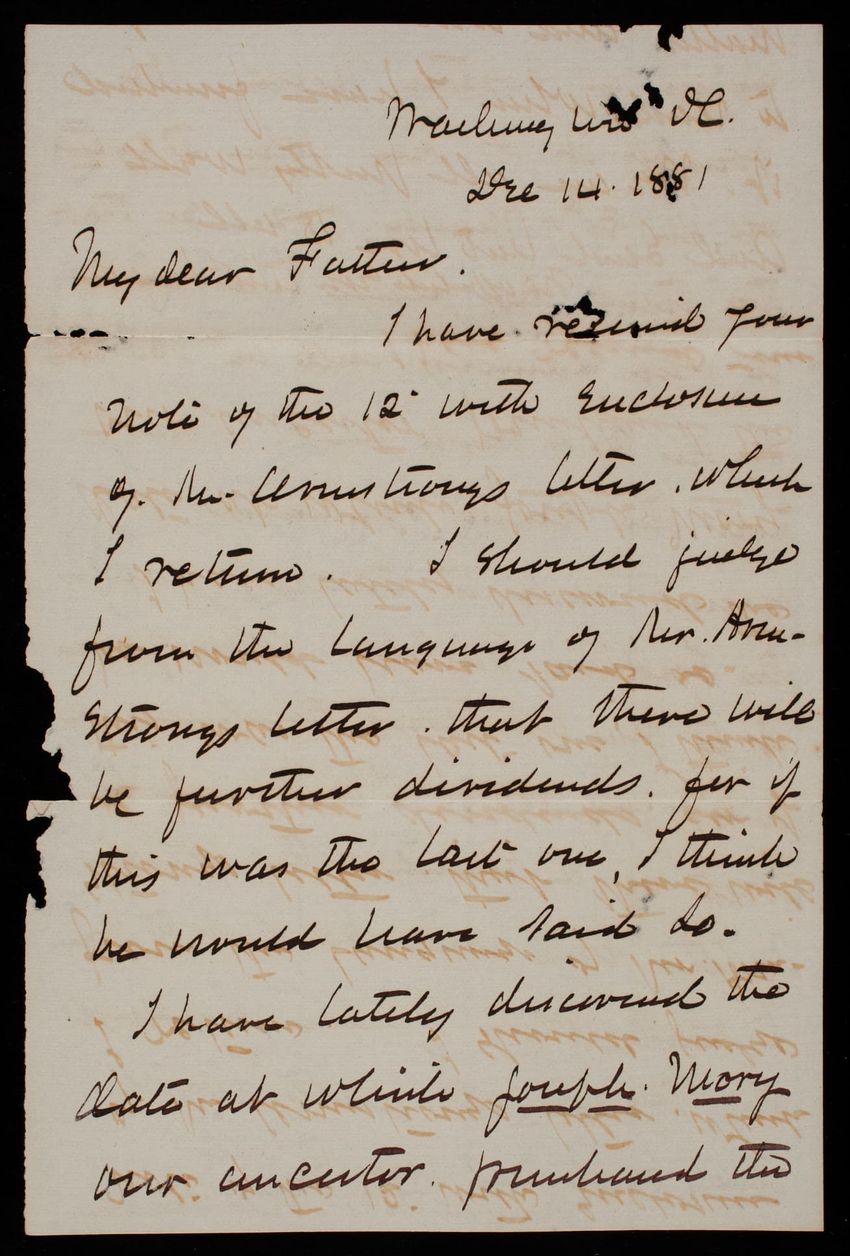 Washington DC.
Dec 14. 1881
My dear Father.
I have received your
note of the 12 with Enclosure
of Mr. Armstrongs letter. which
I return. I should judge
from the language of Mr. Arm-
strongs letter. that there will
be further dividends. for if
this was the last one, I think
he would have said so.
I have lately discovered the
date at which Joseph. Mory
our ancestor. purchased the